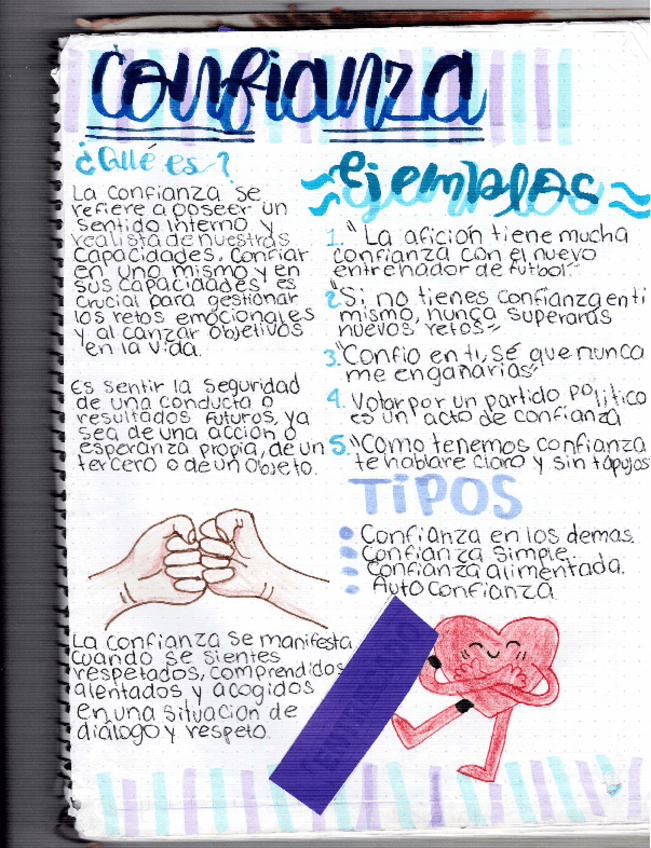 Confianza
¿Qué es?
La confianza se
refiere a poseer un
sentido interno y
realista de nuestras
capacidades. Confiar
en uno mismo y en
sus capacidades es
crucial para gestionar
los retos emocionales
y al canzar objetivos
en la vida.
Es sentir la seguridad
de una conducta o
resultados futuros, ya
sea de una acción o
esperanza propia, de un
tercero o de un objeto.
La confianza se manifiesta
cuando se sientes
respetados, comprendidos
alentados y acogidos
en una situación de
diálogo y respeto.
Ejemplos
1. "La afición tiene mucha
confianza con el nuevo
entrenador de futbol."
2. "Si no tienes confianza en ti
mismo, nunca superarás
nuevos retos"
3. "Confio en ti, sé que nunca
me engañarías"
4. Votar por un partido político
es un acto de confianza
5. "Como tenemos confianza
te hablare claro y sin tapujos
TIPOS
Confianza en los demas.
Confianza simple.
Confianza alimentada.
Auto confianza